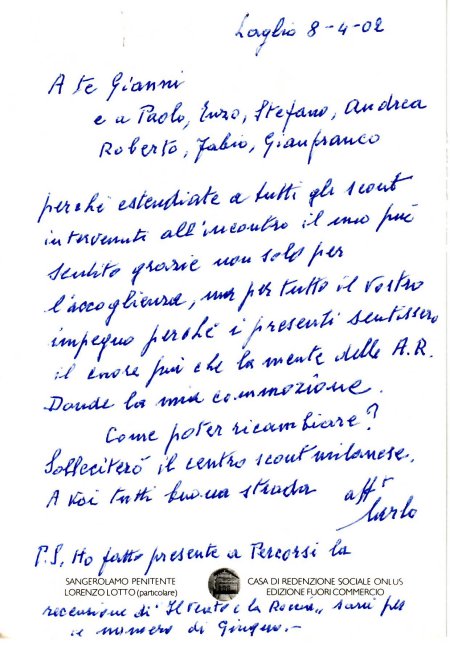 Laglio 8-4-02
A te Gianni
e a Paolo, Enzo, Stefano, Andrea
Roberto, Fabio, Gianfranco
perché estendiate a tutti gli scout
intervenuti all'incontro il mio più
sentito grazie non solo per
l'accoglienza, ma per tutto il vostro
impegno perché i presenti sentissero
il cuore più che la mente delle A.R.
Donde la mia commozione.
Come poter ricambiare?
Solleciterò il centro scout milanese.
A voi tutti buona strada aff.
Carlo
P.S. Ho fatto presente a Percorsi la
SANGEROLAMO PENITENTE
LORENZO LOTTO (particolare)
CASA DI REDENZIONE SOCIALE ONLUS
EDIZIONE FUORI COMMERCIO
recensione di "Il Vento e la Roccia" sarà per
il numero di Giugno.-